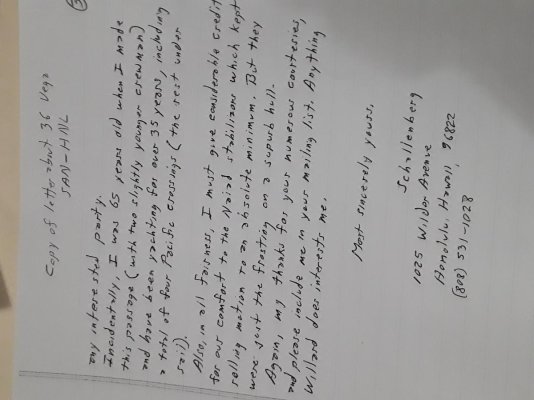 3
Copy of letter about 36 Vega
SAN-HNL
any interested party.
Incidentally, I was 65 years old when I made
this passage (with two slightly younger crewman)
and have been yachting for over 35 years, including
a total of four Pacific crossings (the rest under
sail).
Also, in all fairness, I must give considerable credit
for our comfort to the Naiad stabilizers which kept
rolling motion to an absolute minimum. But they
were just the frosting on a supurb hull.
Again, my thanks for your numerous courtesies,
and please include me in your mailing list. Anything
Willard does interests me.
Most sincerely yours,
Schallenberg
1025 Wilder Avenue
Honolulu, Hawaii, 96822
(808) 531-1028